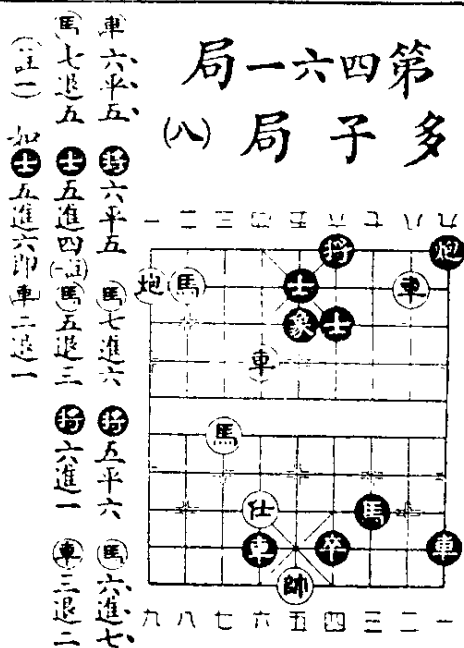 第四六一局
多子局(八)
一二三四五六七八九
將 炮
炮 馬 士 車
象 士
車
馬
仕 馬
車 卒 車
帥
九八七六五四三二一
車六平五 將六平五 馬七進六 將五平六 馬六進七
馬七退五 士五進四(註一) 馬五退三 將六進一 車三退二
(註一) 如士五進六即車二退一